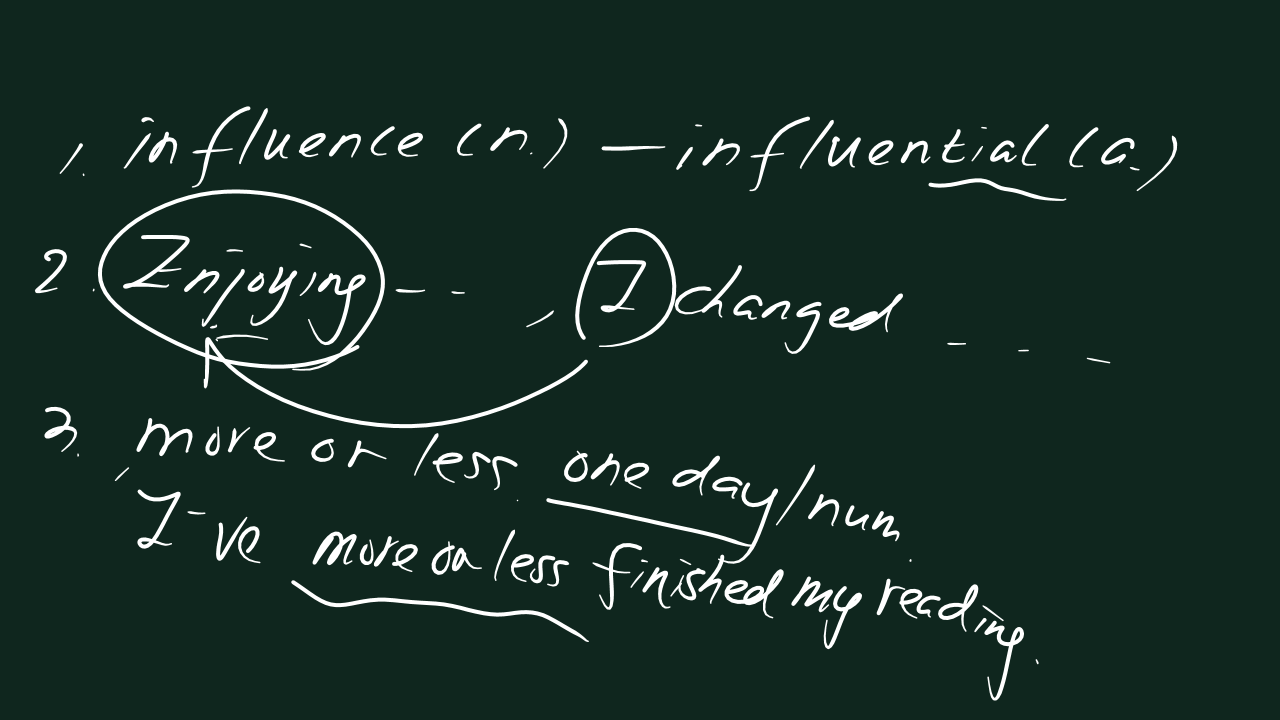 1. influence (n.) — influential (a.)
2. Enjoying - - , I changed - - -
3. more or less one day/num.
I've more or less finished my reading.